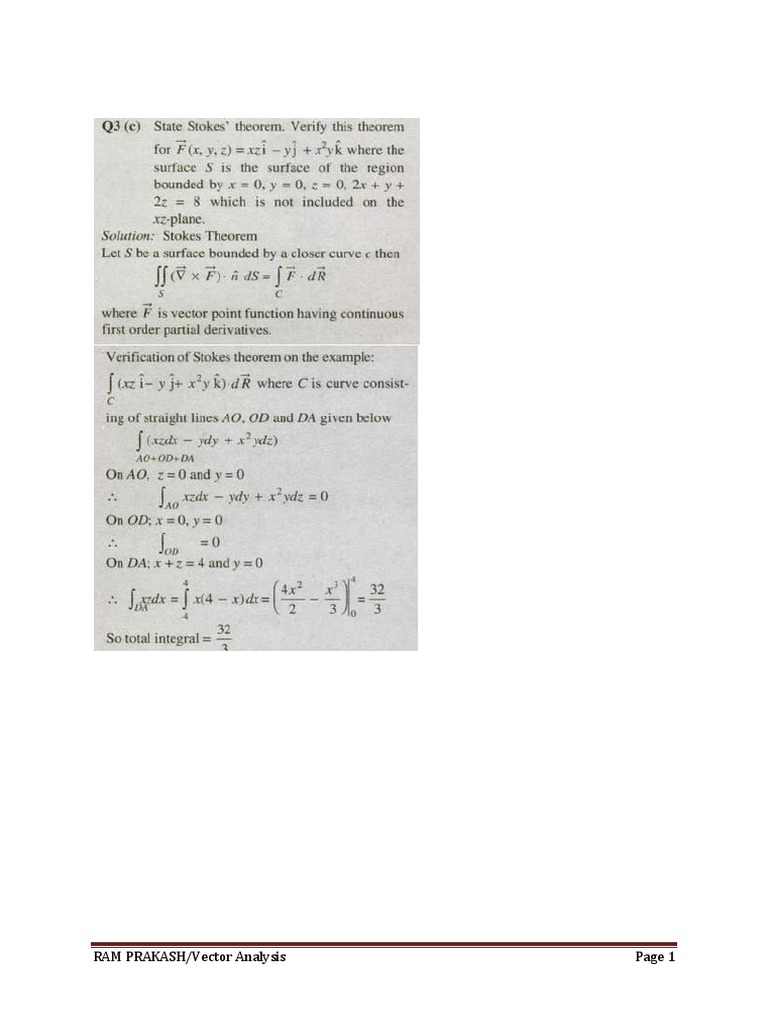 Q3 (c) State Stokes' theorem. Verify this theorem
for F⃗(x, y, z) = xz î − y ĵ + x²y k̂ where the
surface S is the surface of the region
bounded by x = 0, y = 0, z = 0, 2x + y +
2z = 8 which is not included on the
xz-plane.
Solution: Stokes Theorem
Let S be a surface bounded by a closer curve c then
∬_S (∇⃗ × F⃗) · n̂ dS = ∫_C F⃗ · dR⃗
where F⃗ is vector point function having continuous
first order partial derivatives.
Verification of Stokes theorem on the example:
∫_C (xz î − y ĵ + x²y k̂)·dR⃗ where C is curve consist-
ing of straight lines AO, OD and DA given below
∫_{AO+OD+DA} (xzdx − ydy + x²ydz)
On AO, z = 0 and y = 0
∴ ∫_{AO} xzdx − ydy + x²ydz = 0
On OD; x = 0, y = 0
∴ ∫_{OD} = 0
On DA; x + z = 4 and y = 0
∴ ∫_{DA} xzdx = ∫_4^4 x(4 − x)dx = (4x²/2 − x³/3)|_0^4 = 32/3
So total integral = 32/3
RAM PRAKASH/Vector Analysis Page 1